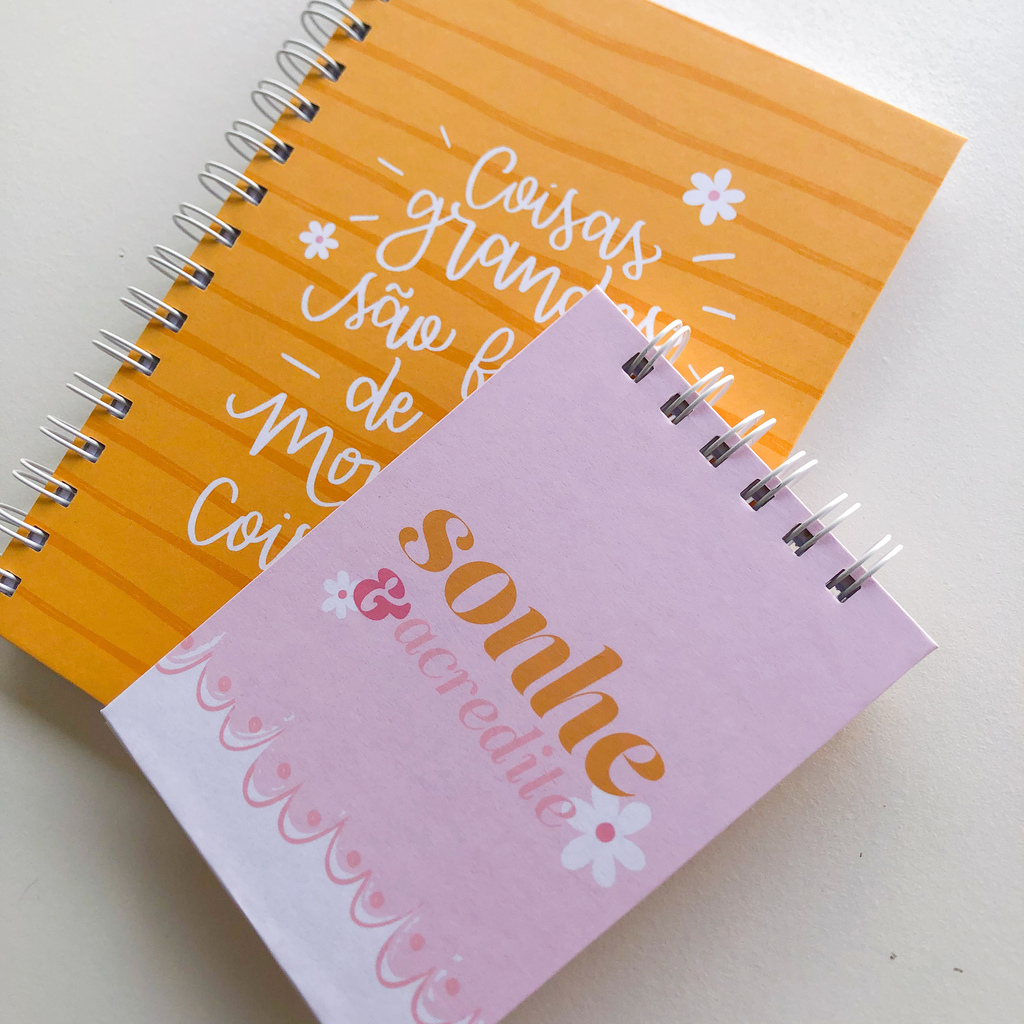 Coisas
grandes
são
de
sonhe
& acredite